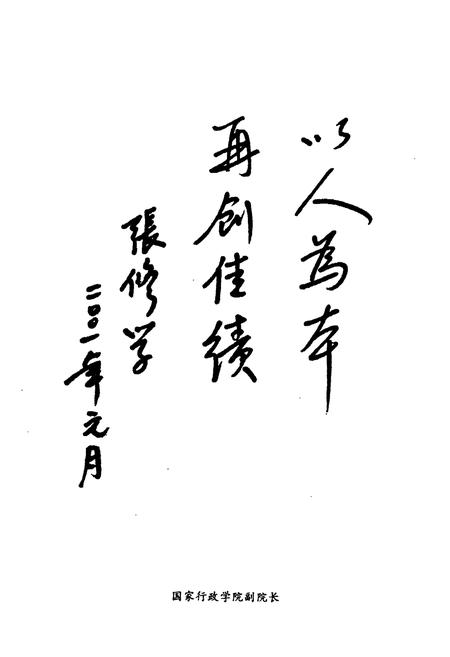 以人為本
再创佳绩
張修学
二〇〇一年元月
国家行政学院副院长